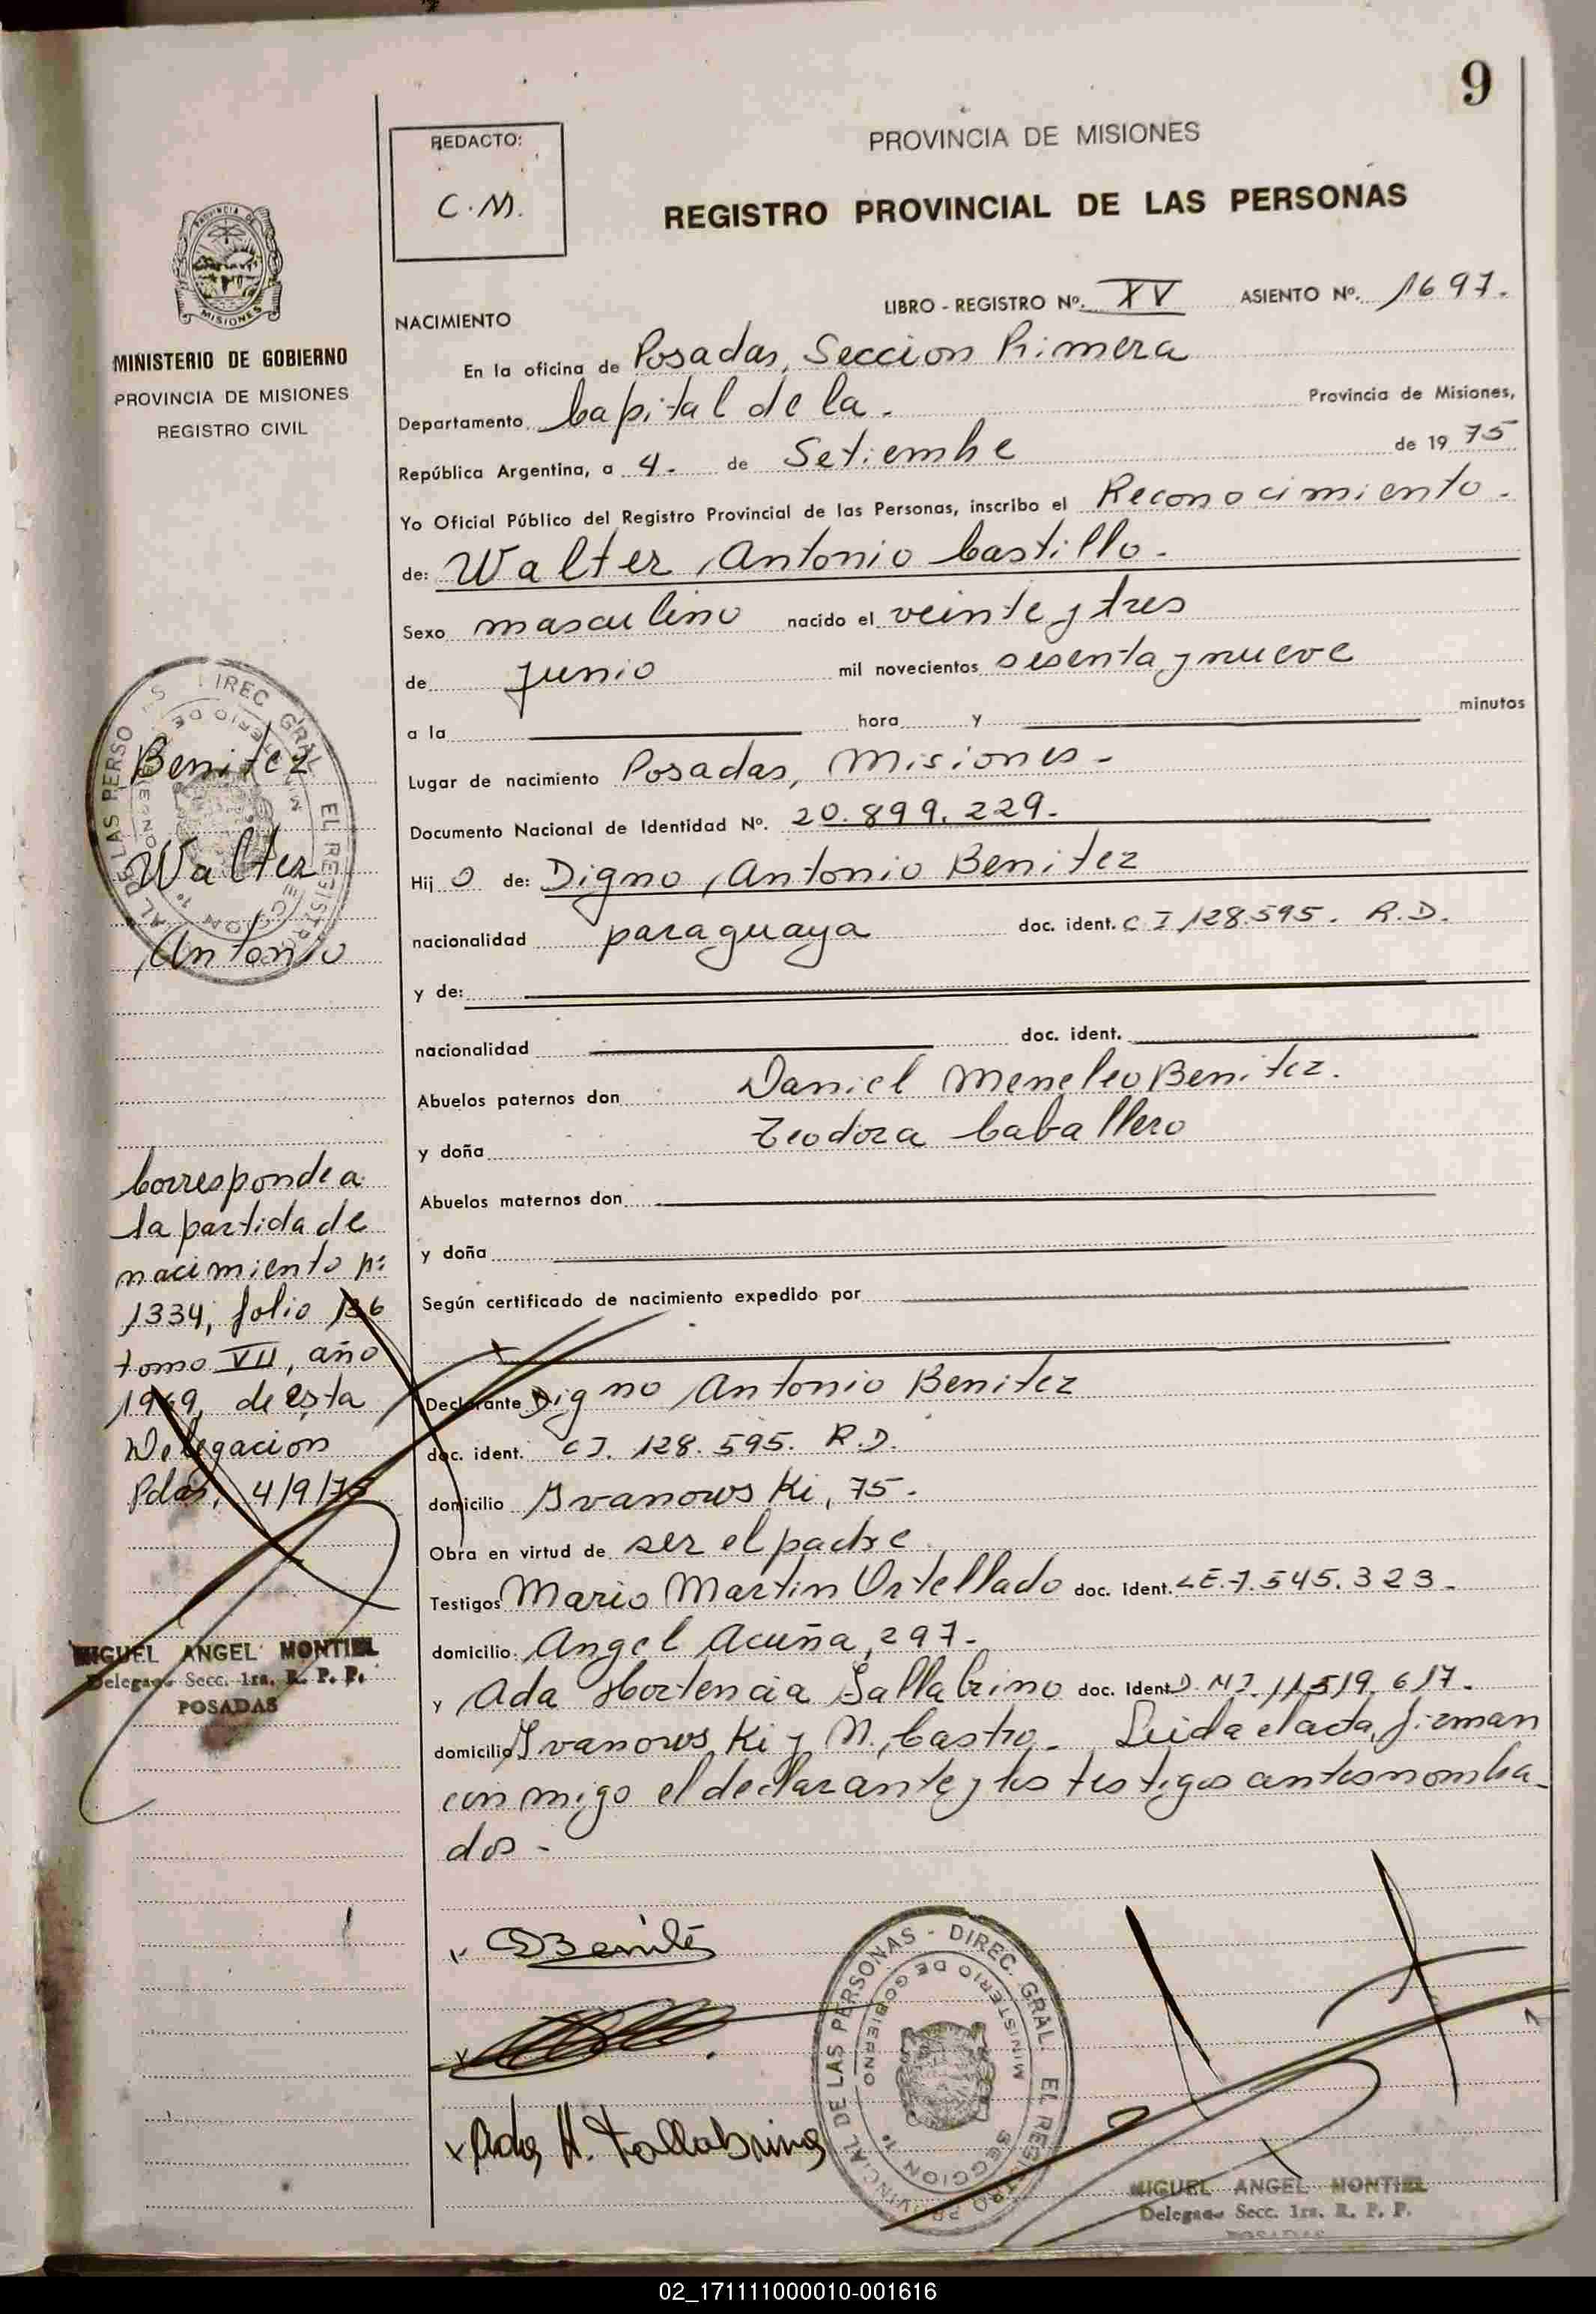 9
REDACTO:
C.M.
PROVINCIA DE MISIONES
REGISTRO PROVINCIAL DE LAS PERSONAS
PROVINCIA DE
MISIONES
MINISTERIO DE GOBIERNO
PROVINCIA DE MISIONES
REGISTRO CIVIL
LIBRO - REGISTRO Nº. XV ASIENTO Nº. 1697.
NACIMIENTO
En la oficina de Posadas, Seccion Primera
Departamento Capital de la. Provincia de Misiones,
República Argentina, a 4. de Setiembre de 19 75
Yo Oficial Público del Registro Provincial de las Personas, inscribo el Reconocimiento.
de: Walter Antonio Castillo.
Sexo masculino nacido el veinte y tres
de junio mil novecientos sesenta y nueve
a la hora y minutos
Lugar de nacimiento Posadas, Misiones.
Documento Nacional de Identidad Nº. 20.899.229.
Hij o de: Digno Antonio Benitez
nacionalidad paraguaya doc. ident. C I 128.595. R.D.
y de:
nacionalidad doc. ident.
Abuelos paternos don Daniel Meneleo Benitez.
y doña Teodora Caballero
Abuelos maternos don
y doña
Según certificado de nacimiento expedido por
Declarante Digno Antonio Benitez
doc. ident. CI. 128.595. R.D.
domicilio Ivanowski, 75.
Obra en virtud de ser el padre.
Testigos Mario Martin Ortellado doc. Ident. LE.7.545.323.
domicilio. Angel Acuña, 297.
y Ada Hortencia Tallabrino doc. Ident D.NI. 11.519.617.
domicilio Ivanowski y M. Castro. Leida el acta, firman
conmigo el declarante y los testigos antes nombra-
dos.
Benitez
Walter
Antonio
Corresponde a
la partida de
nacimiento nº
1334, folio 136
tomo VII, año
1969, de esta
Delegacion
Pdas, 4/9/75
MIGUEL ANGEL MONTIEL
Delegado Secc. 1ra. R. P. P.
POSADAS
DBenitez
Ada H. Tallabrino
DIREC. GRAL. EL REGISTRO PROVINCIAL DE LAS PERSONAS -
MINISTERIO DE GOBIERNO
SECCION 1ª
MIGUEL ANGEL MONTIEL
Delegado Secc. 1ra. R. P. P.
POSADAS
02_171111000010-001616